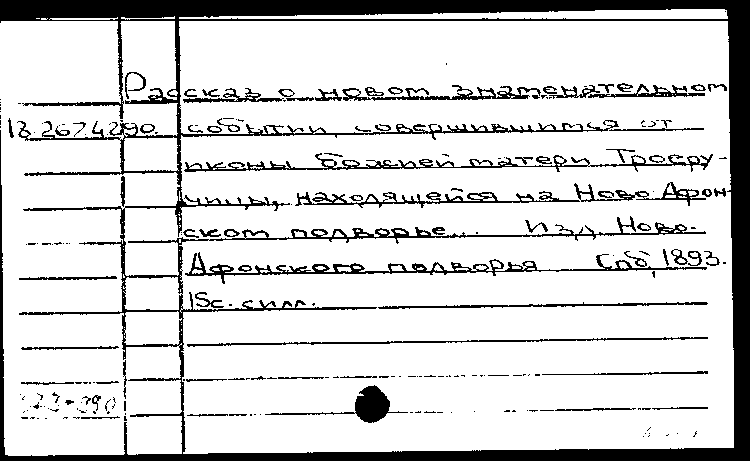 Рассказ о новом знаменательном
18.267.4.290. событии, совершившимся от
иконы Божией матери Троеру-
чицы, находящейся на Ново-Афон-
ском подворье... Изд. Ново-
Афонского подворья Спб, 1893.
15с. с илл.
-390